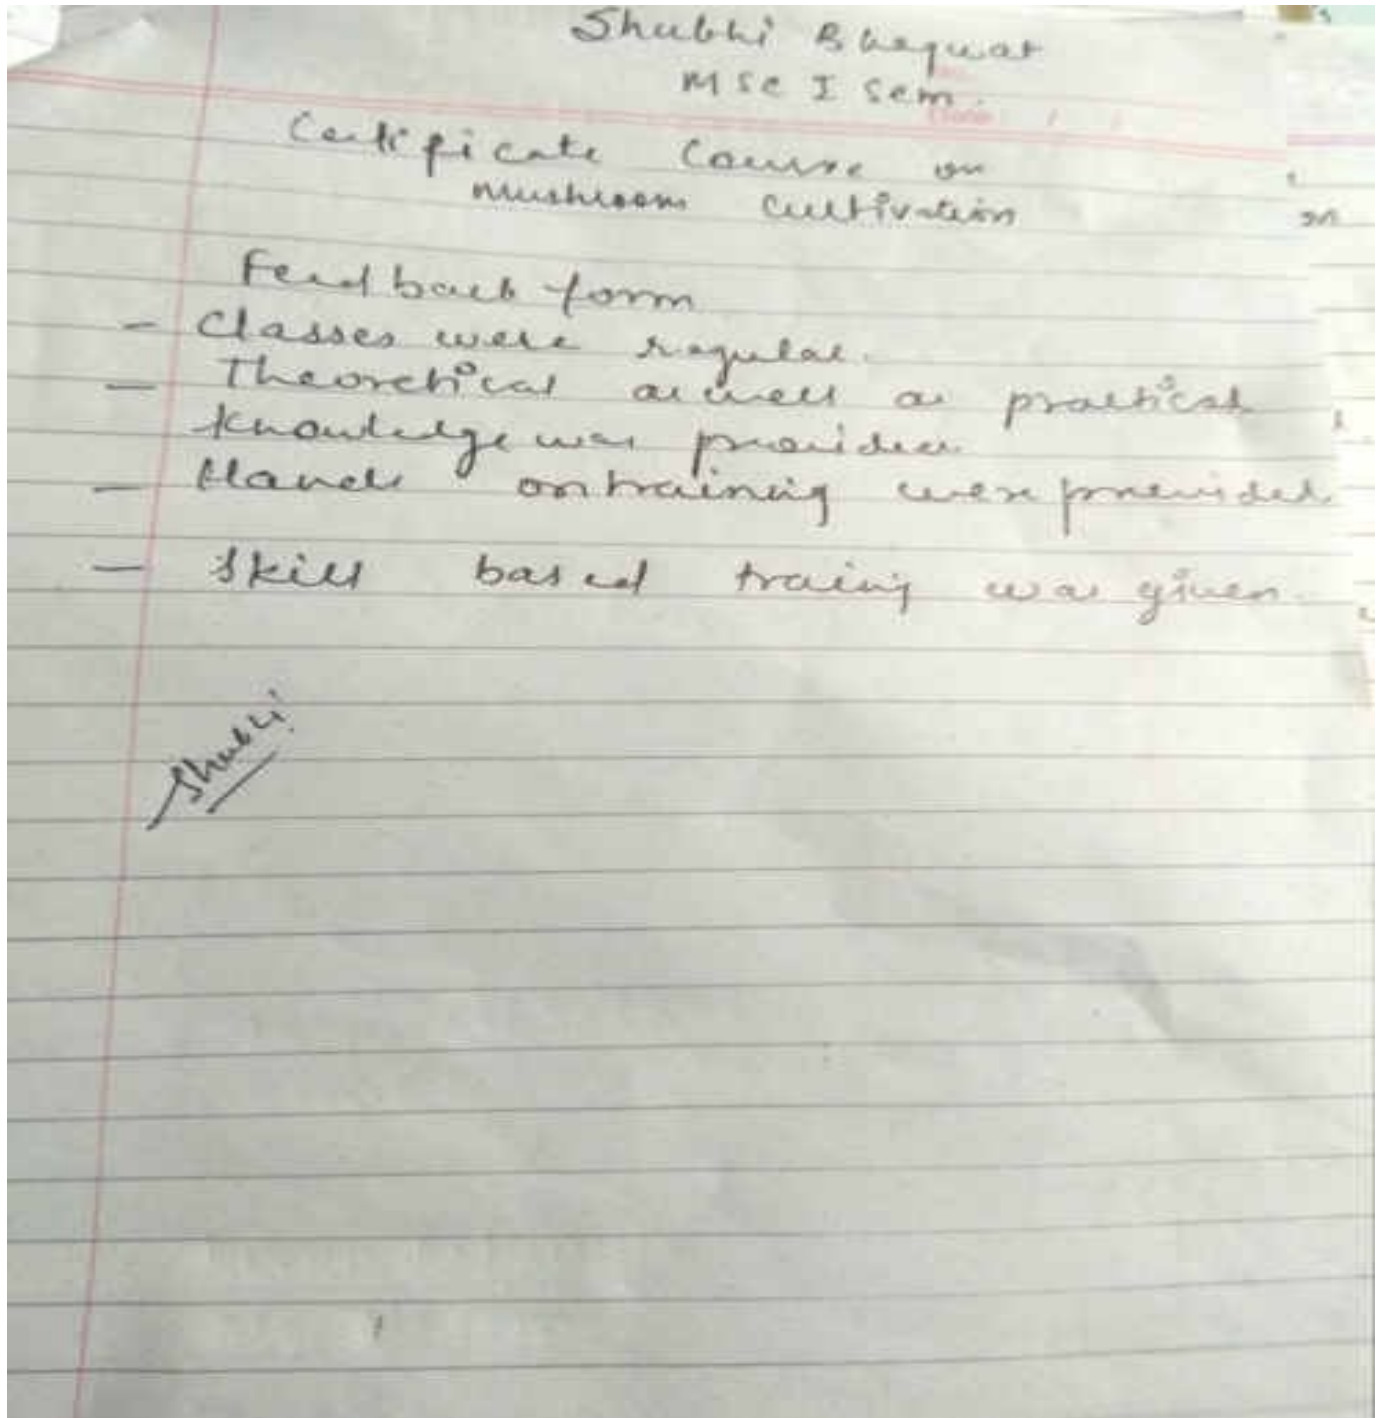 Shubhi Bhagwat
MSc I Sem.
Certificate Course on
mushroom cultivation
Feedback form
- Classes were regular.
- Theoretical as well as practical
knowledge was provided.
- Hands on training were provided.
- Skill based traing was given.
Shubhi